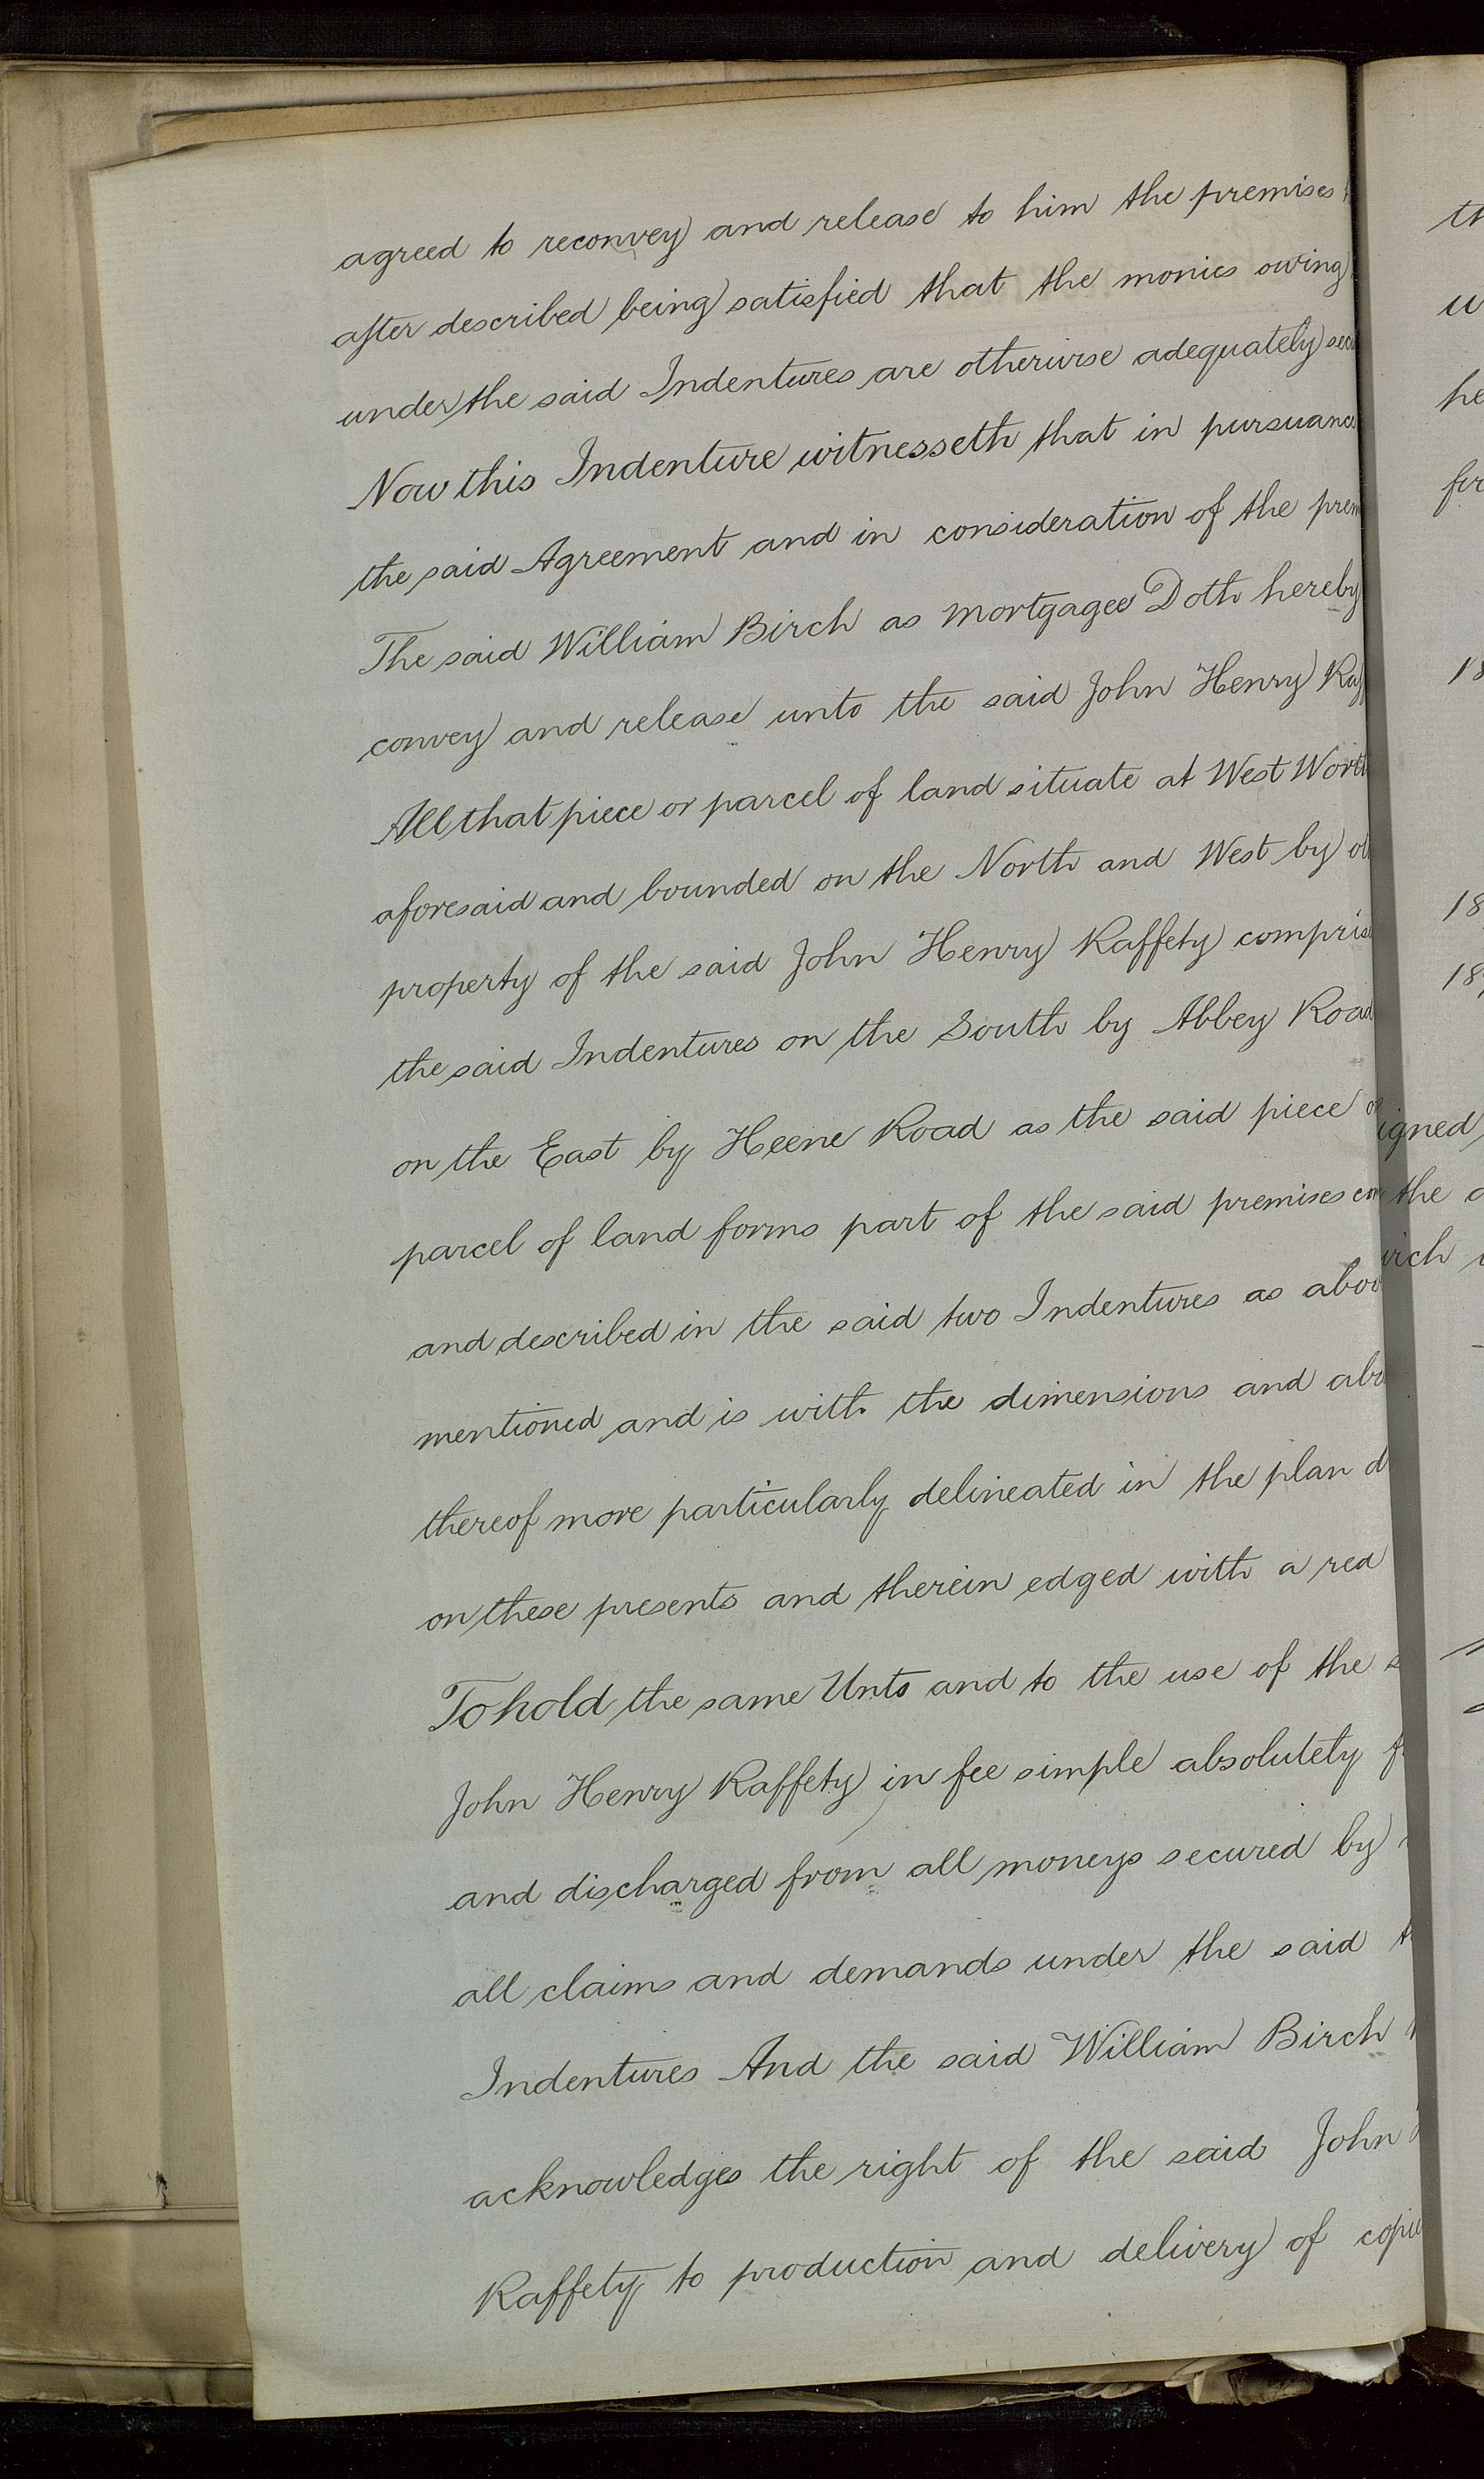 agreed to reconvey and release to him the premises
after described being satisfied that the monies owing
under the said Indentures are otherwise adequately
Now this Indenture witnesseth that in pursuance
the said Agreement and in consideration of the
The said William Birch as Mortgagee Doth hereby
convey and release unto the said John Henry
All that piece or parcel of land situate at West
aforesaid and bounded on the North and West by
property of the said John Henry Raffety
the said Indentures on the South by Abbey Road
on the East by Heene Road as the said piece
parcel of land forms part of the said premises
and described in the said two Indentures as
mentioned and is with the dimensions and
thereof more particularly delineated in the plan
on these presents and therein edged with a red
To hold the same Unto and to the use of the
John Henry Raffety in fee simple absolutely
and discharged from all moneys secured by
all claims and demands under the said
Indentures And the said William Birch
acknowledges the right of the said John
Raffety to production and delivery of